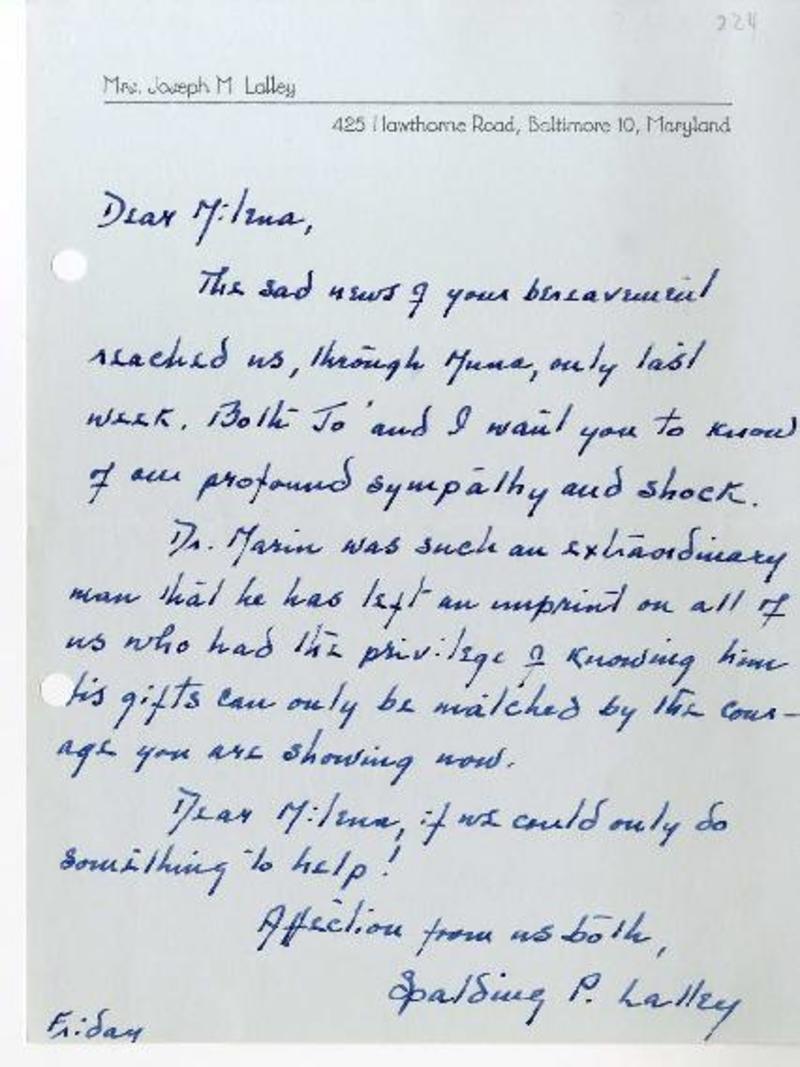 224
Mrs. Joseph M Lalley
425 Hawthorne Road, Baltimore 10, Maryland
Dear Milena,
The sad news of your bereavement
reached us, through Muna, only last
week. Both Jo and I want you to know
of our profound sympathy and shock.
Dr. Marin was such an extraordinary
man that he has left an imprint on all of
us who had the privilege of knowing him
His gifts can only be matched by the cour-
age you are showing now.
Dear Milena, if we could only do
something to help!
Affection from us both,
Spalding P. Lalley
Friday